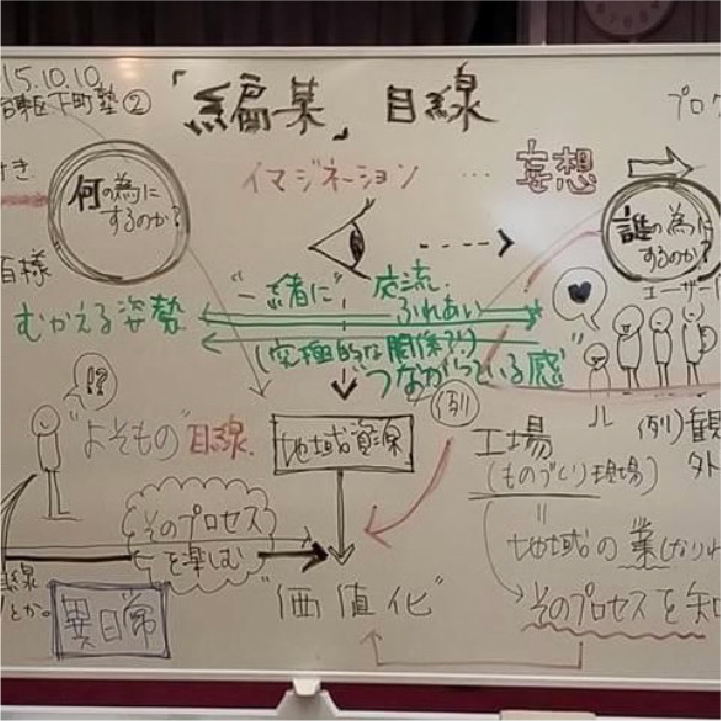 15.10.10
台東区下町塾②
「編集」目線
プロ
何の為に
するのか?
イマジネーション … 妄想
誰の為に
するのか?
ユーザー
皆様
むかえる姿勢
"一緒に" 交流.
ふれあい
(究極的な関係づくり)
"つながっている感"
!?
"よそもの"目線.
地域資源
(例)
工場
(ものづくり現場)
(例)観
外
そのプロセス
を楽しむ
〃
地域の業(なりわ
線
とか。
異日常
"価値化"
そのプロセスを知